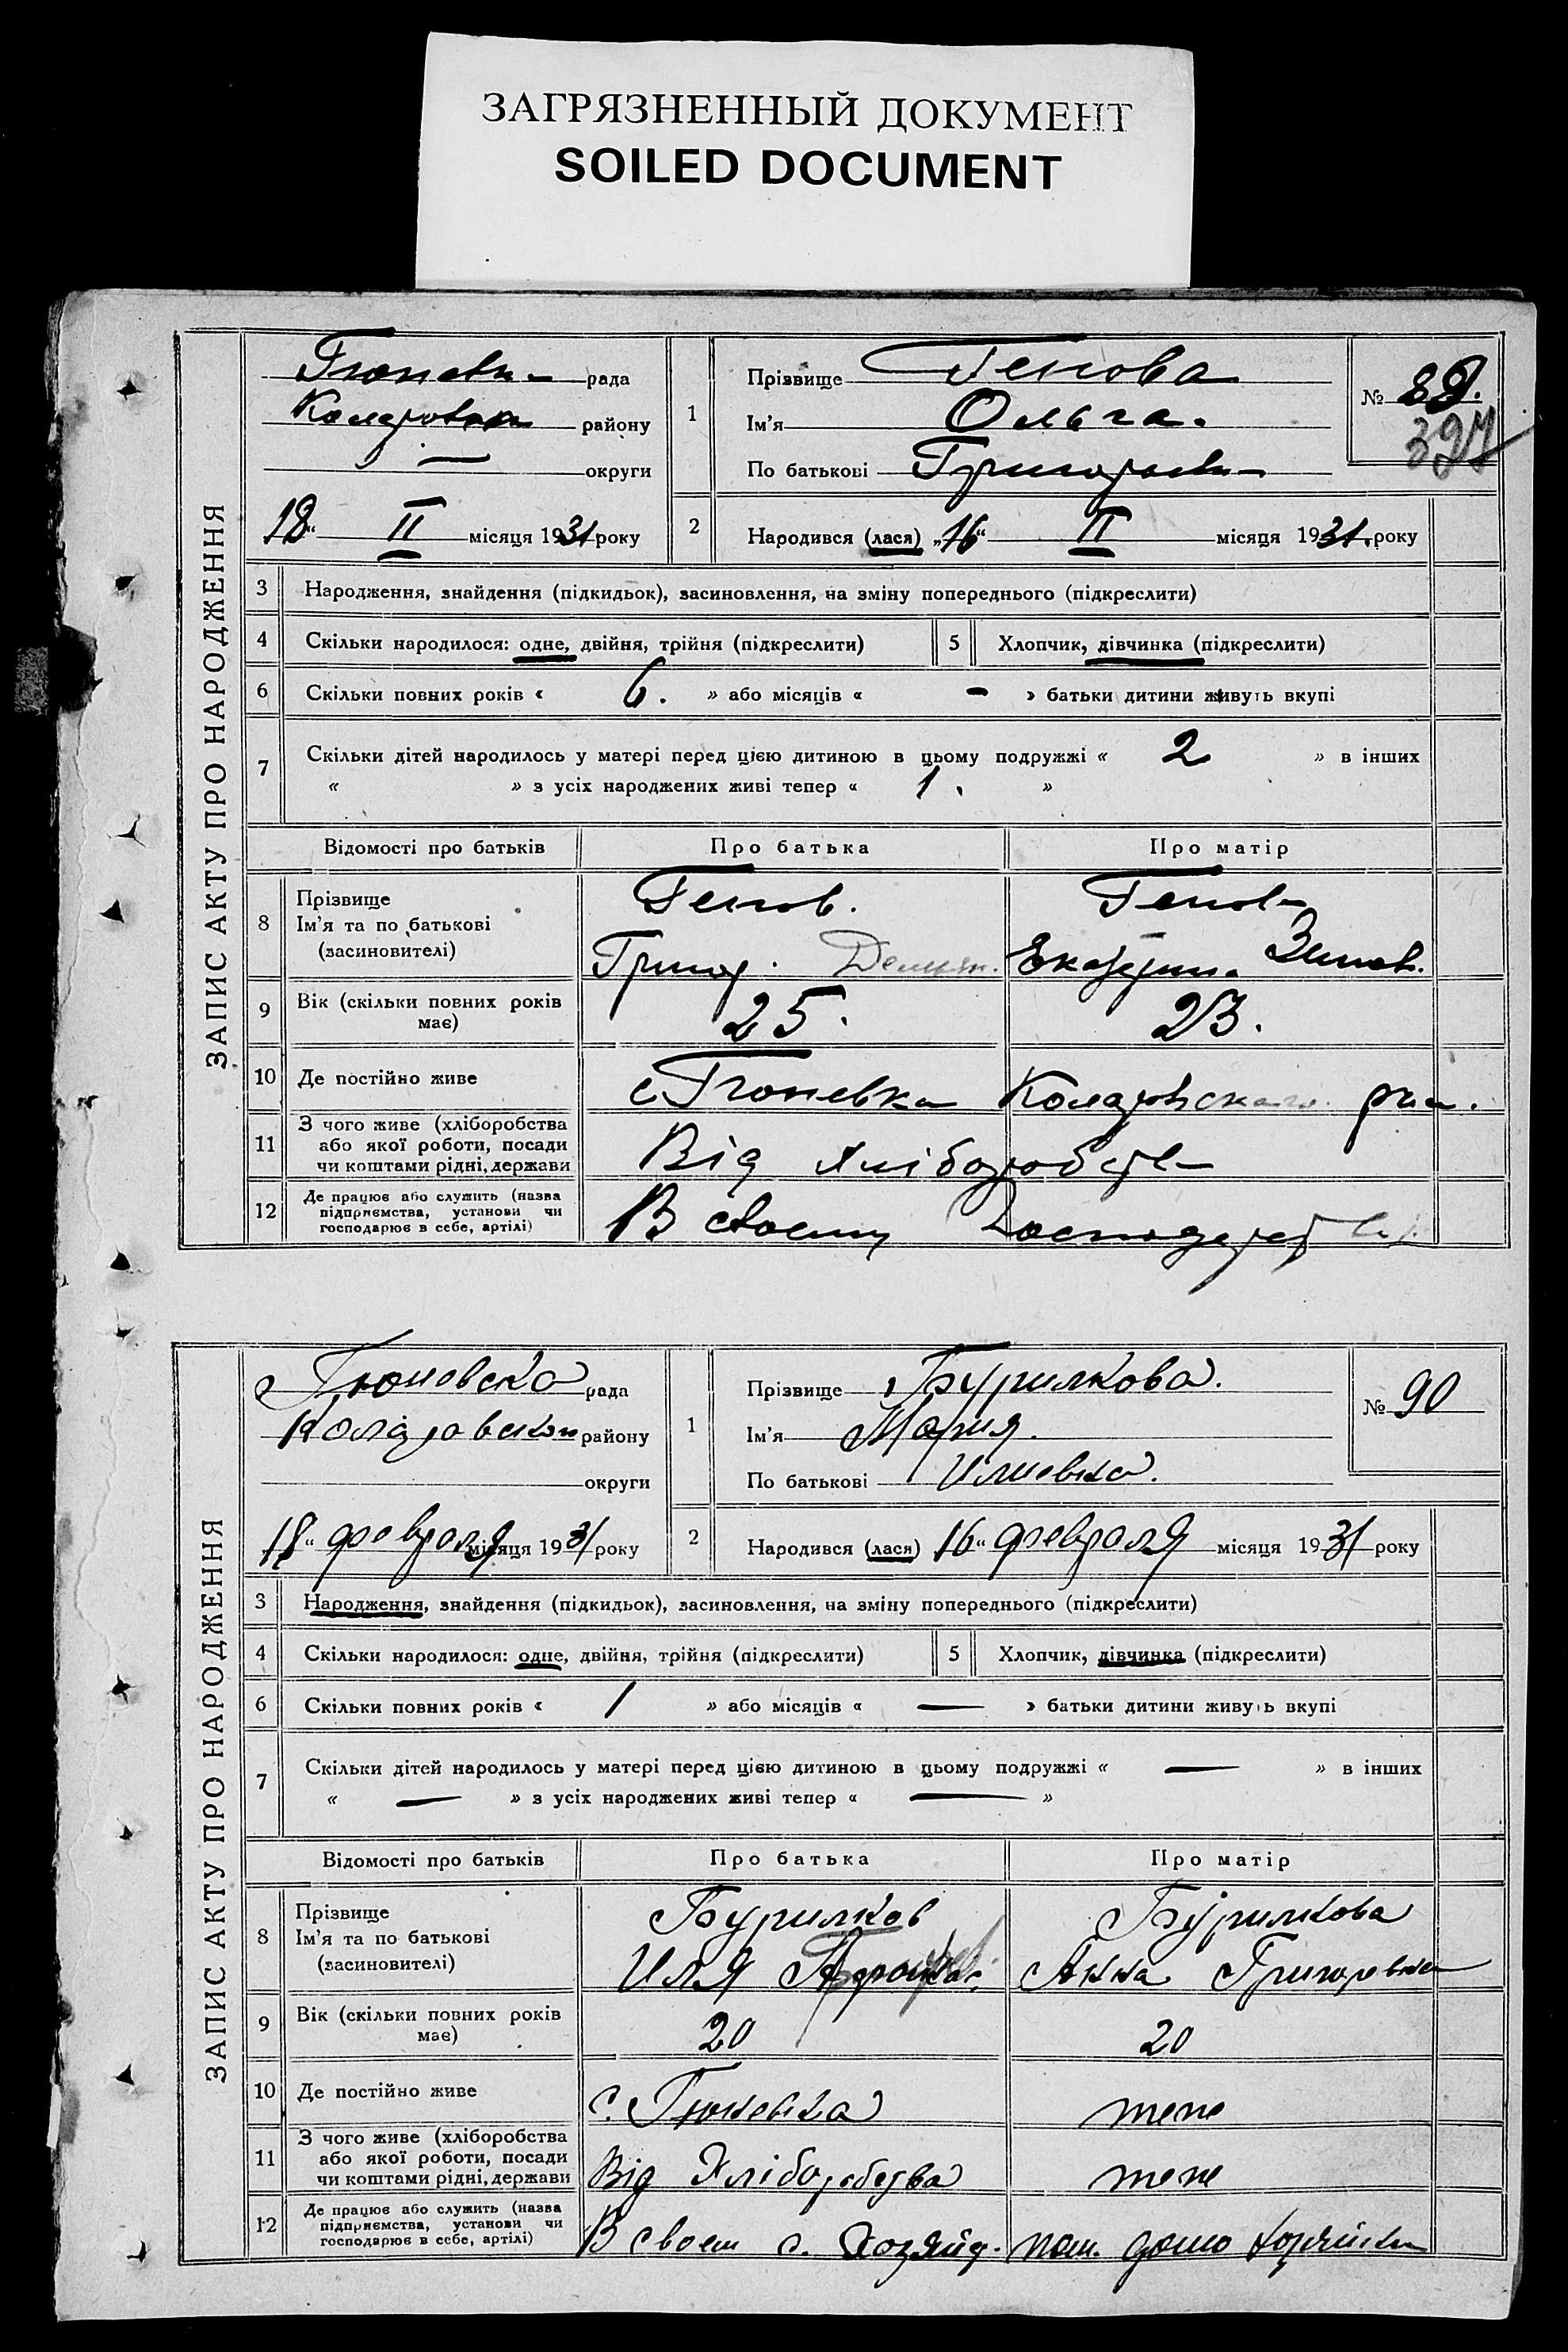 ЗАГРЯЗНЕННЫЙ ДОКУМЕНТ
SOILED DOCUMENT
ЗАПИС АКТУ ПРО НАРОДЖЕННЯ
рада
району
— округи
18 " II місяця 1931 року
1
Прізвище Генова
Ім'я Ольга.
По батькові
№ 89.
397
2
Народився (лася) „16" II місяця 1931. року
3 Народження, знайдення (підкидьок), засиновлення, на зміну попереднього (підкреслити)
4 Скільки народилося: одне, двійня, трійня (підкреслити)
5 Хлопчик, дівчинка (підкреслити)
6 Скільки повних років « 6. » або місяців « - » батьки дитини живуть вкупі
7 Скільки дітей народилось у матері перед цією дитиною в цьому подружжі « 2 » в інших
« » з усіх народжених живі тепер « 1. »
Відомості про батьків Про батька Про матір
8
Прізвище
Ім'я та по батькові
(засиновителі)
Генов.
Григор. Демьян.
Генова
Екатерина Зинов.
9 Вік (скільки повних років
має)
25. 23.
10 Де постійно живе
с Гюневка Коларовского рна.
11 З чого живе (хліборобства
або якої роботи, посади
чи коштами рідні, держави
Від хліборобства
12 Де працює або служить (назва
підприємства, установи чи
господарює в себе, артілі)
В своему
ЗАПИС АКТУ ПРО НАРОДЖЕННЯ
Гюневска рада
району
округи
18 " февраля місяця 1931 року
1
Прізвище Бурилкова.
Ім'я Мария.
По батькові Илиевна.
№ 90
2
Народився (лася) 16 " февраля місяця 1931 року
3 Народження, знайдення (підкидьок), засиновлення, на зміну попереднього (підкреслити)
4 Скільки народилося: одне, двійня, трійня (підкреслити)
5 Хлопчик, дівчинка (підкреслити)
6 Скільки повних років « 1 » або місяців « — » батьки дитини живуть вкупі
7 Скільки дітей народилось у матері перед цією дитиною в цьому подружжі « — » в інших
« — » з усіх народжених живі тепер « — »
Відомості про батьків Про батька Про матір
8
Прізвище
Ім'я та по батькові
(засиновителі)
Бурилков
Иля
Бурилкова
Анна Григоревна
9 Вік (скільки повних років
має)
20 20
10 Де постійно живе
с. Гюневка теж
11 З чого живе (хліборобства
або якої роботи, посади
чи коштами рідні, держави
Від Хліборобства теж
12 Де працює або служить (назва
підприємства, установи чи
господарює в себе, артілі)
В своем с. хозяйд.